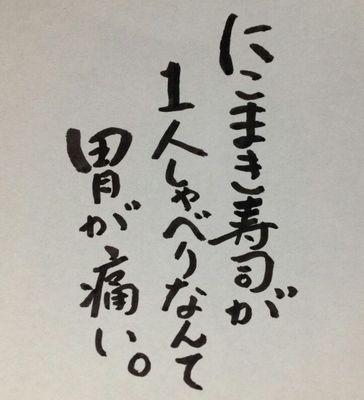 にこまき寿司が
1人しゃべりなんて
胃が痛い。